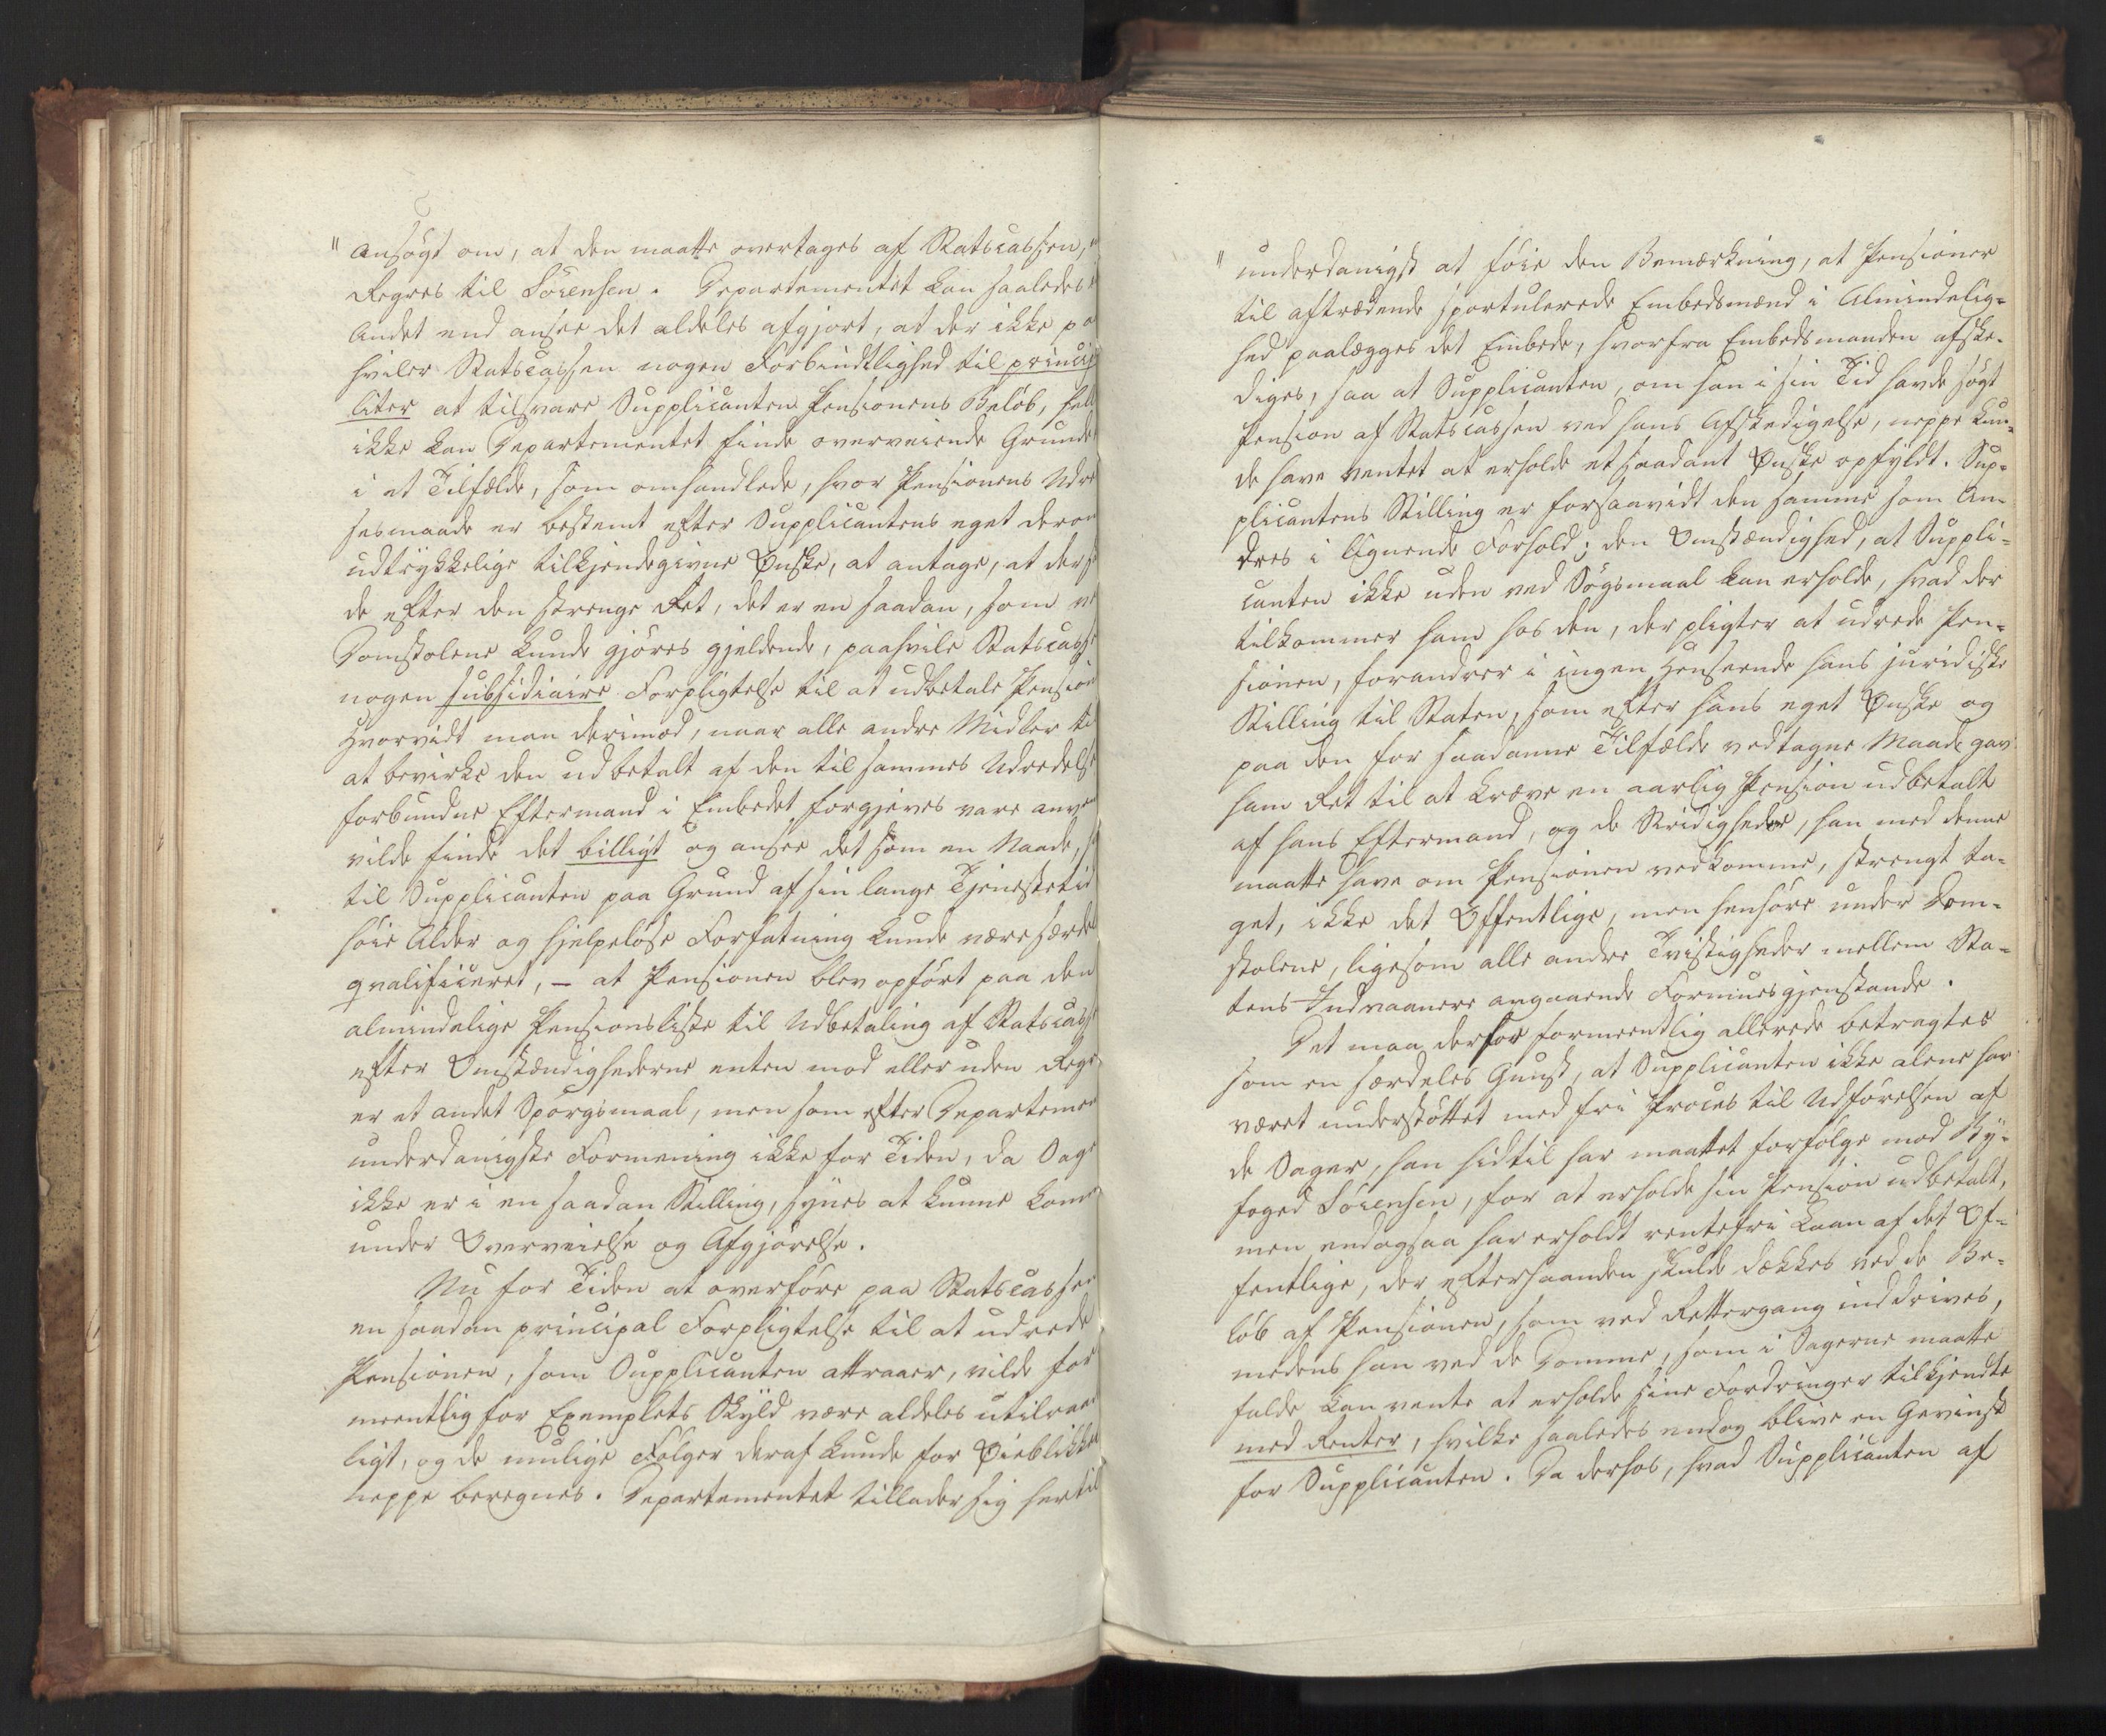 " ansøgt om, at den maatte overtages af Statscassen,
Regres til Sörensen. Departementet kan saaledes
Andet end ansee det aldeles afgjort, at der ikke pa
hviler Statscassen nogen Forbindtlighed til princip
liter at tilsvare Supplicanten Pensionens Beløb, hel
ikke kan Departementet finde overveiende Grunde
i et Tilfælde, som omhandlede, hvor Pensionens Udre
sesmaade er bestemt efter Supplicantens eget derom
udtrykkelige tilkjendegivne Ønske, at antage, at der
de efter den strenge Ret, det er en saadan, som ve
Domstolene kunde gjøres gjeldende, paahvile Statscasse
nogen subsidiaire Forpligtelse til at udbetale Pension
Hvorvidt man derimod, naar alle andre Midler ti
at bevirke den udbetalt af den til sammes Udredelse
forbundne Eftermand i Embedet forgjeves vare anven
vilde finde det billigt og ansee det som en Naade,
til Supplicanten paa Grund af sin lange Tjenestetid
høie Alder og hjelpeløse Forfatning kunde være særdel
qvalificeret, – at Pensionen blev opført paa den
almindelige Pensionsliste til Udbetaling af Statscasse
efter Omstændighederne enten mod eller uden Regr
er et andet Spørgsmaal, men som efter Departemen
underdanigste Formening ikke for Tiden, da Sage
ikke er i en saadan Stilling, synes at kunne komme
under Overveielse og Afgjørelse.
Nu for Tiden at overføre paa Statscassen
en saadan principal Forpligtelse til at udrede
Pensionen, som Supplicanten attraaer, vilde for
meentlig for Exemplets Skyld være aldeles utilraa
ligt, og de mulige Følger deraf kunde for Øieblikket
neppe beregnes. Departementet tillader sig hertil
" underdanigst at føie den Bemærkning, at Pensioner
til aftrædende sportulerede Embedsmænd i Almindelig=
hed paalægges det Embede, hvorfra Embedsmanden afske=
diges, saa at Supplicanten, om han i sin Tid havde søgt
Pension af Statscassen ved hans Afskedigelse, neppe kun=
de have ventet at erholde et saadant Ønske opfyldt. Sup=
plicantens Stilling er forsaavidt den samme som An=
dres i lignende Forhold; den Omstændighed, at Suppli=
canten ikke uden ved Søgsmaal kan erholde, hvad der
tilkommer ham hos den, der pligter at udrede Pen=
sionen, forandrer i ingen Henseende hans juridiske
Stilling til Staten, som efter hans eget Ønske og
paa den for saadanne Tilfælde vedtagne Maade gav
ham Ret til at kræve en aarlig Pension udbetalt
af hans Eftermand, og de Stridigheder, han med denne
maatte have om Pensionen vedkomme, strengt ta=
get, ikke det Offentlige, men henhøre under Dom=
stolene, ligesom alle andre Tvistigheder mellem Sta=
tens Indvaanere angaaende Formuesgjenstande.
Det maa derfor formeentlig allerede betragtes
som en særdeles Gunst, at Supplicanten ikke alene har
været understøttet med fri Proces til Udførelsen af
de Sager, han hidtil har maattet forfølge mod By=
foged Sörensen, for at erholde sin Pension udbetalt,
men endogsaa har erholdt rentefri Laan af det Of=
fentlige, der efterhaanden skulde dækkes ved de Be=
løb af Pensionen, som ved Rettergang inddrives,
medens han ved de Domme, som i Sagerne maatte
falde kan vente at erholde sine Fordringer tilkjendte
med Renter, hvilke saaledes endog blive en Gevinst
for Supplicanten. Da derhos, hvad Supplicanten af